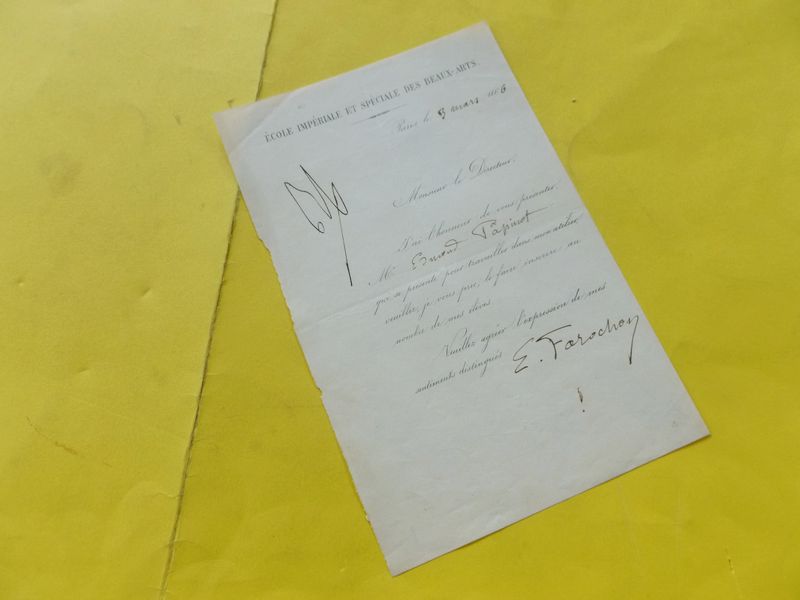 ÉCOLE IMPÉRIALE ET SPÉCIALE DES BEAUX-ARTS.
Paris le 9 mars 1866
Monsieur le Directeur,
J'ai l'honneur de vous présenter
Mr Papinot
qui se présente pour travailler dans mon atelier
veuillez, je vous prie, le faire inscrire au
nombre de mes élèves.
Veuillez agréer l'expression de mes
sentiments distingués
E. Farochon